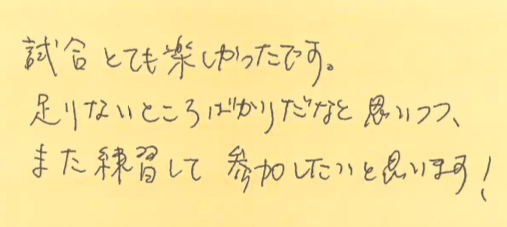 試合とても楽しかったです。
足りないところばかりだなと思いつつ、
また練習して参加したいと思います!